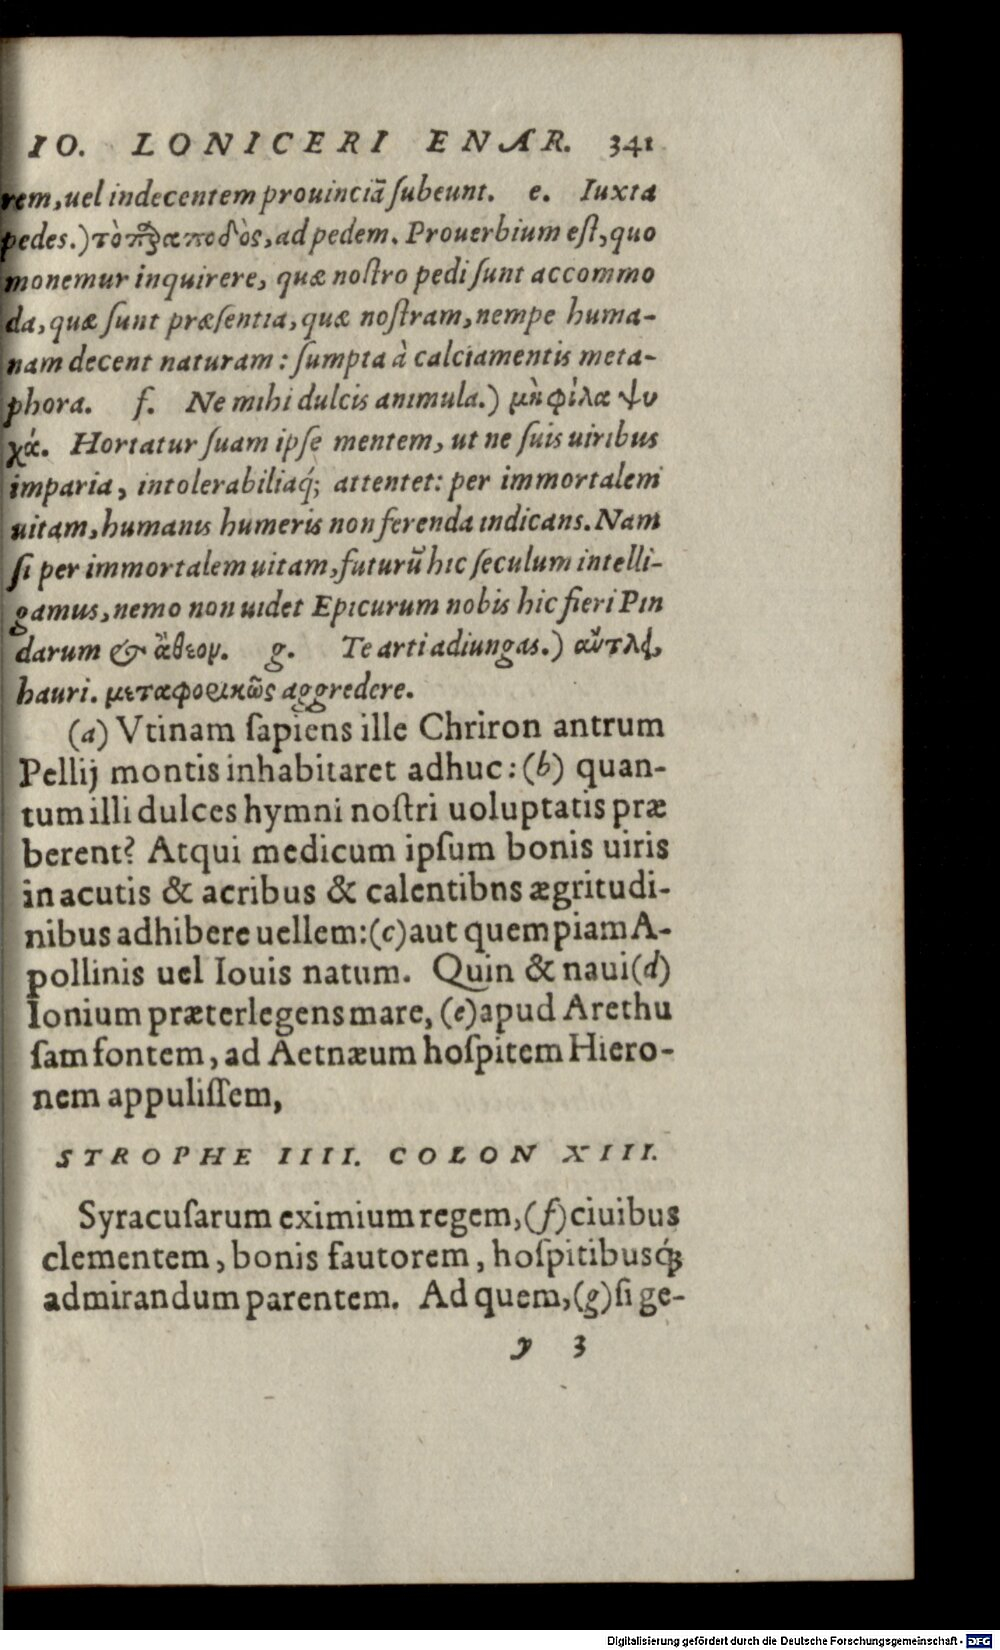 IO. LONICERI ENAR. 341
rem, uel indecentem prouinciã ſubeunt. e. Iuxta
pedes.) τὸ παρ ποδὸς, ad pedem. Prouerbium eſt, quo
monemur inquirere, quæ noſtro pedi ſunt accommo
da, quæ ſunt præſentia, quæ noſtram, nempe huma-
nam decent naturam: ſumpta à calciamentis meta-
phora. f. Ne mihi dulcis animula.) μὴ φίλα ψυ
χά. Hortatur ſuam ipſe mentem, ut ne ſuis uiribus
imparia, intolerabiliaq́; attentet: per immortalem
uitam, humanis humeris non ferenda indicans. Nam
ſi per immortalem uitam, futurũ hic ſeculum intelli-
gamus, nemo non uidet Epicurum nobis hic fieri Pin
darum & ἄθεον. g. Te arti adiungas.) αὔτλει,
hauri. μεταφορικῶς aggredere.
(a) Vtinam ſapiens ille Chriron antrum
Pellij montis inhabitaret adhuc: (b) quan-
tum illi dulces hymni noſtri uoluptatis præ
berent? Atqui medicum ipſum bonis uiris
in acutis & acribus & calentibns ægritudi-
nibus adhibere uellem: (c) aut quempiam A-
pollinis uel Iouis natum. Quin & naui (d)
Ionium præterlegens mare, (e) apud Arethu
ſam fontem, ad Aetnæum hoſpitem Hiero-
nem appuliſſem,
STROPHE IIII. COLON XIII.
Syracuſarum eximium regem, (f) ciuibus
clementem, bonis fautorem, hoſpitibusq́ꝫ
admirandum parentem. Ad quem, (g) ſi ge-
y 3
Digitalisierung gefördert durch die Deutsche Forschungsgemeinschaft - DFG